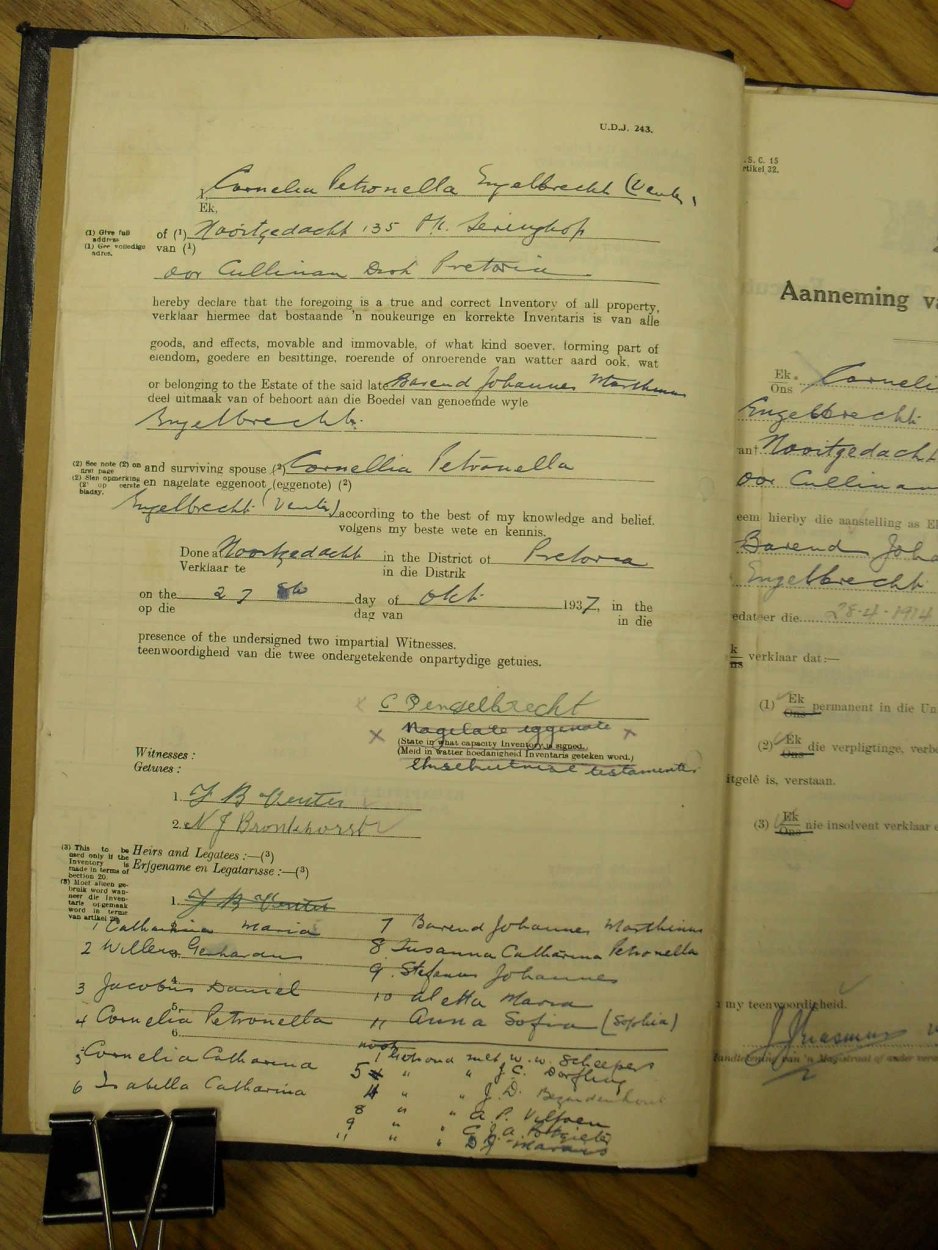 U.D.J. 243.
Cornelia Petronella Engelbrecht (Venter)
Ek,
(1) Give full address
(1) Gee volledige adres.
of (1) Nooitgedacht 135 Pk.
van (1)
oor Cullinan Dist Pretoria
hereby declare that the foregoing is a true and correct Inventory of all property,
verklaar hiermee dat bostaande 'n noukeurige en korrekte Inventaris is van alle
goods, and effects, movable and immovable, of what kind soever, forming part of
eiendom, goedere en besittinge, roerende of onroerende van watter aard ook, wat
or belonging to the Estate of the said late Barend Johannes Marthinus
deel uitmaak van of behoort aan die Boedel van genoemde wyle
Engelbrecht.
(2) See note (2) on first page
(2) Sien opmerking (2) op eerste bladsy.
and surviving spouse (2) Cornellia Petronella
en nagelate eggenoot (eggenote) (2)
Engelbrecht (Venter) according to the best of my knowledge and belief.
volgens my beste wete en kennis.
Done at Nooitgedacht in the District of Pretoria
Verklaar te in die Distrik
on the 27 ste day of Okt. 1937, in the
op die dag van in die
presence of the undersigned two impartial Witnesses.
teenwoordigheid van die twee ondergetekende onpartydige getuies.
C P Engelbrecht
Nagelate eggenote
(State in what capacity Inventory is signed.)
(Meld in watter hoedanigheid Inventaris geteken word.)
testamentêr
Witnesses :
Getuies :
1. J B Venter
2. N J Bronkhorst
(3) This to be used only if the Inventory is made in terms of Section 20.
(3) Moet alleen gebruik word wanneer die Inventaris opgemaak word in terme van artikel 20.
Heirs and Legatees :—(3)
Erfgename en Legatarisse :—(3)
1. J B Venter
1 Catharina Maria
2 Willem Gerhardus
3 Jacobus Daniel
4 Cornelia Petronella
5 Cornelia Catharina
6 Isabella Catharina
7 Barend Johannes Marthinus
8 Susanna Catharina Petronella
9 Stefanus Johannes
10 Aletta Maria
11 Anna Sofia (Sophia)
1 Getroud met W. W. Scheepers
5 " " J. C. Dorfling
4 " " J. D. Bezuidenhout
8 " " A. P. Viljoen
9 " " C. J. A. Potgieter
11 " " D. J. Marais
.S. C. 15
rtikel 32.
Aanneming va
Ek
Ons
Corneli
Engelbrecht
an Nooitgedacht
oor Cullinan
eem hierby die aanstelling as E
Barend Joha
Engelbrecht
edateer die 28-4-1914
k
ns
verklaar dat :—
(1) Ek
Ons permanent in die Un
(2) Ek
Ons die verpligtinge, verbo
itgelê is, verstaan.
(3) Ek
Ons nie insolvent verklaar
my teenwoordigheid.
J J Erasmus